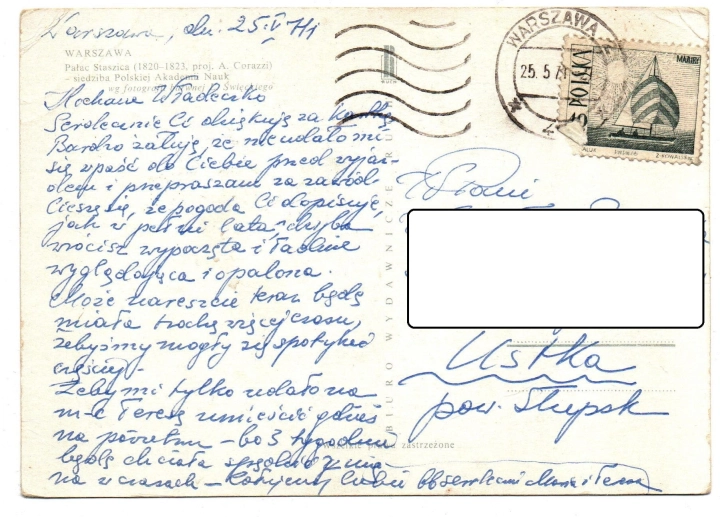 Warszawa, dn. 25.V 71
WARSZAWA
Pałac Staszica (1820–1823, proj. A. Corazzi)
– siedziba Polskiej Akademii Nauk
wg fotografii
Kochana Władeczko
Serdecznie Ci dziękuję za kartkę
Bardzo żałuję, że nie udało mi
się wpaść do Ciebie przed wyjaz-
dem i przepraszam za zawód.
Cieszę się, że pogoda Ci dopisuje,
jak w pełni lata, chyba
wrócisz wypoczęta i ładnie
wyglądająca i opalona.
Może nareszcie teraz będę
miała trochę więcej czasu,
żebyśmy mogły się spotykać
częściej.
Żeby mi tylko udało na
m-c Teresę umieścić gdzieś
na powietrzu – bo 3 tygodnie
będę chciała spędzić z nią
na wczasach – Całujemy Ciebie bb serdecznie Maria i Teresa
BIURO WYDAWNICZE RUCH
zastrzeżone
WARSZAWA
25.5.71
POLSKA
MARRY
W Pani
Ustka
pow. Słupsk